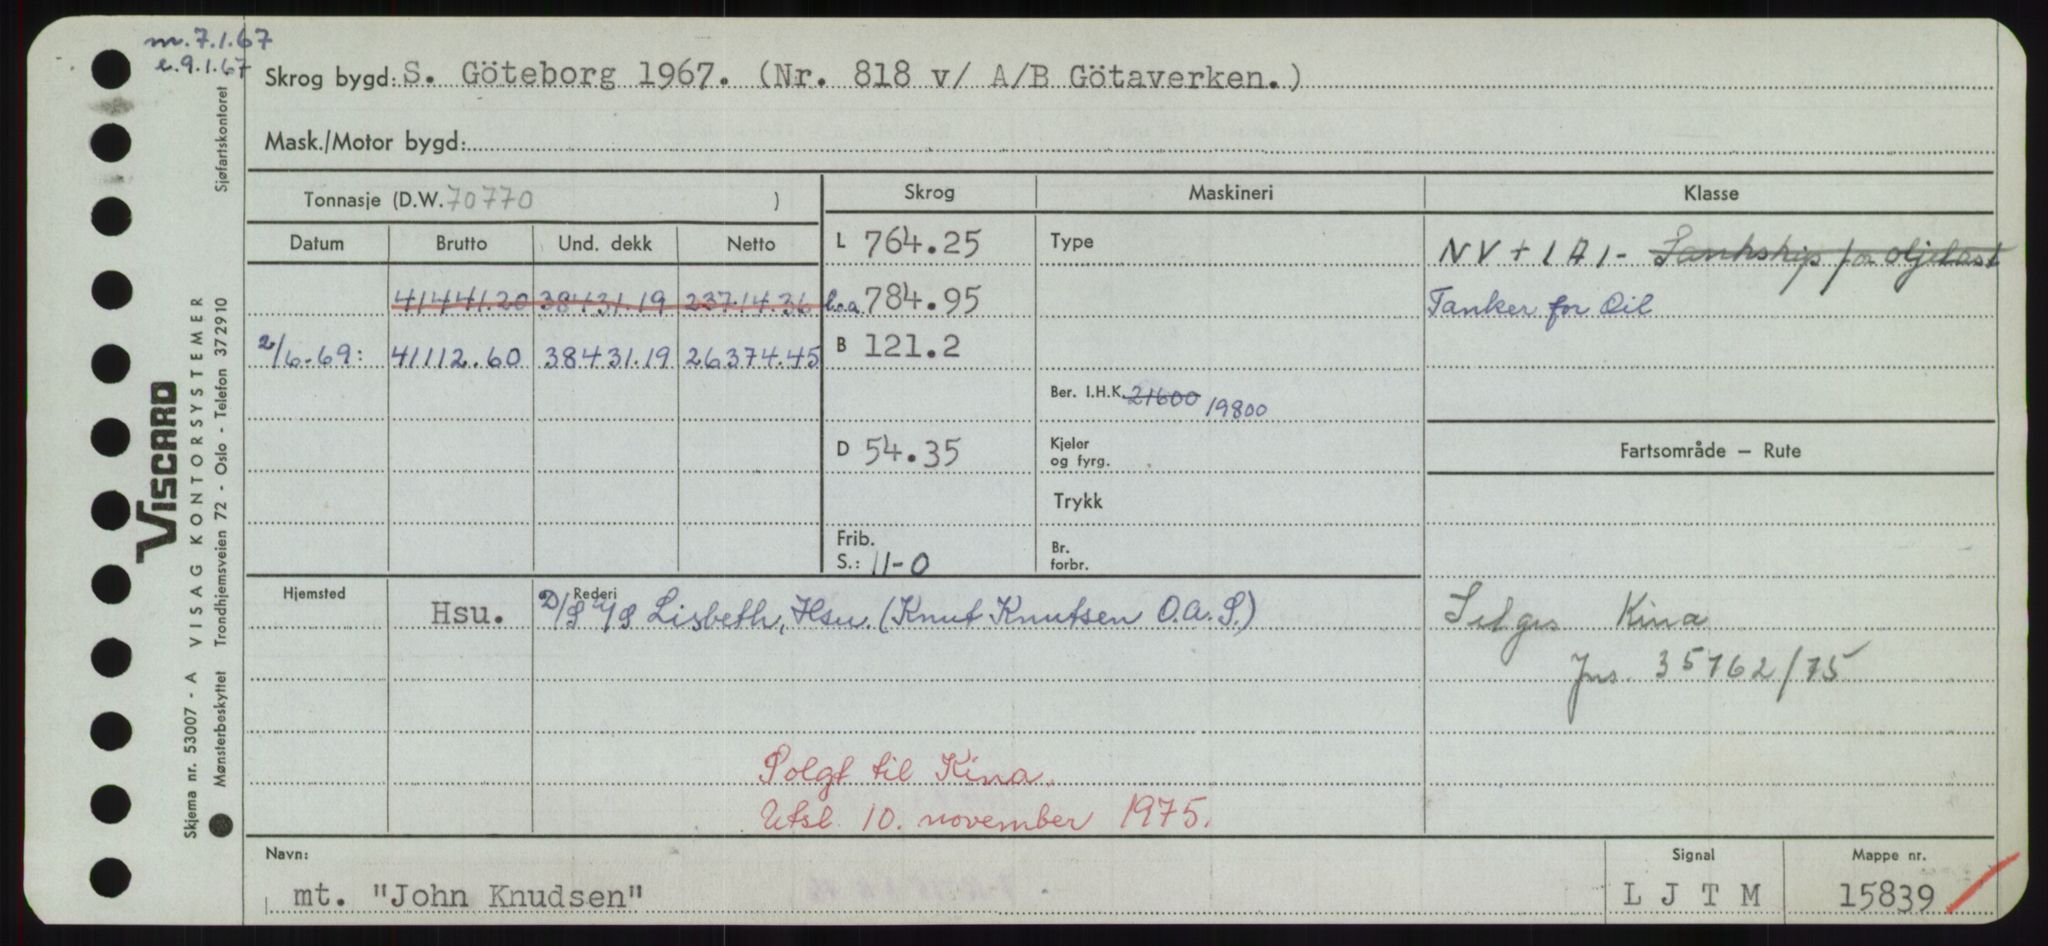 m. 7.1.67
e. 9.1.67
Skrog bygd: S. Göteborg 1967. (Nr. 818 v/ A/B Götaverken.)
Mask./Motor bygd:
Tonnasje (D.W. 70770 )
Skrog Maskineri Klasse
Datum Brutto Und. dekk Netto
L 764.25 Type NV + 1A1 - Tankskip for oljelast
41441.20 38431.19 23714.36 l.o.a. 784.95 Tanker for Oil
2/6-69: 41112.60 38431.19 26374.45 B 121.2
Ber. I.H.K. 21600 19800
D 54.35 Kjeler og fyrg. Fartsområde – Rute
Trykk
Frib. S.: 11-0 Br. forbr.
Hjemsted Rederi
Hsu. D/S A/S Lisbeth, Hsu. (Knut Knutsen O.A.S.) Selges Kina
Jns. 35762/75
Solgt til Kina.
Utsl. 10. november 1975.
Navn: Signal Mappe nr.
mt. "John Knudsen" L J T M 15839
VISCARD
Skjema nr. 53007 - A VISAG KONTORSYSTEMER
Mønsterbeskyttet Trondhjemsveien 72 - Oslo - Telefon 372910 Sjøfartskontoret